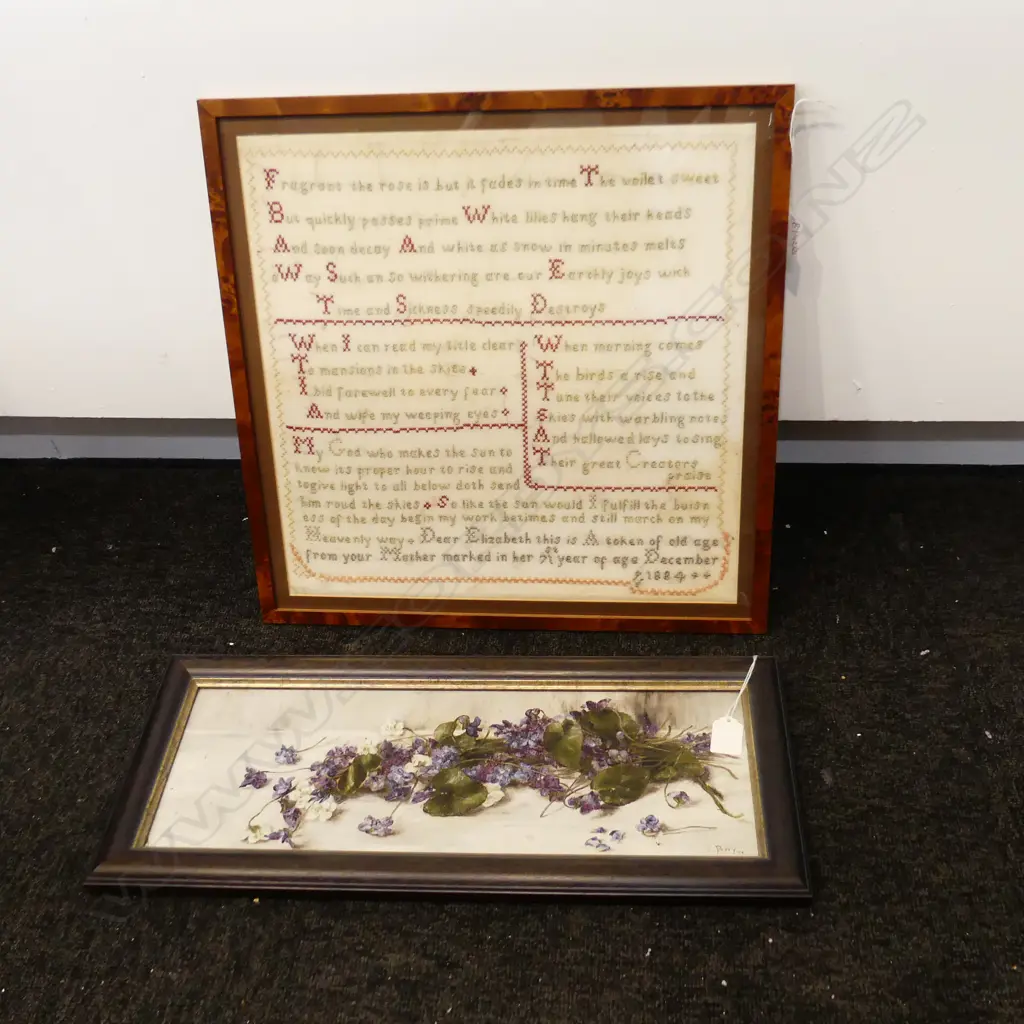 Fragrant the rose is but it fades in time The voilet sweet
But quickly passes prime White lilies hang their heads
And soon decay And white as snow in minutes melts
aWay Such an so withering are our Earthly joys with
Time and Sickness speedily Destroys
When I can read my title clear
To mansions in the skies
I bid farewell to every fear
And wipe my weeping eyes
When morning comes
The birds a rise and
Tune their voices to the
skies with warbling notes
And hallowed lays to sing
Their great Creators
praise
My God who makes the sun to
know its proper hour to rise and
togive light to all below doth send
him roud the skies So like the sun would I fulfill the buisn
ess of the day begin my work betimes and still march on my
Heavenly way Dear Elizabeth this is A token of old age
from your Mother marked in her year of age December
1884